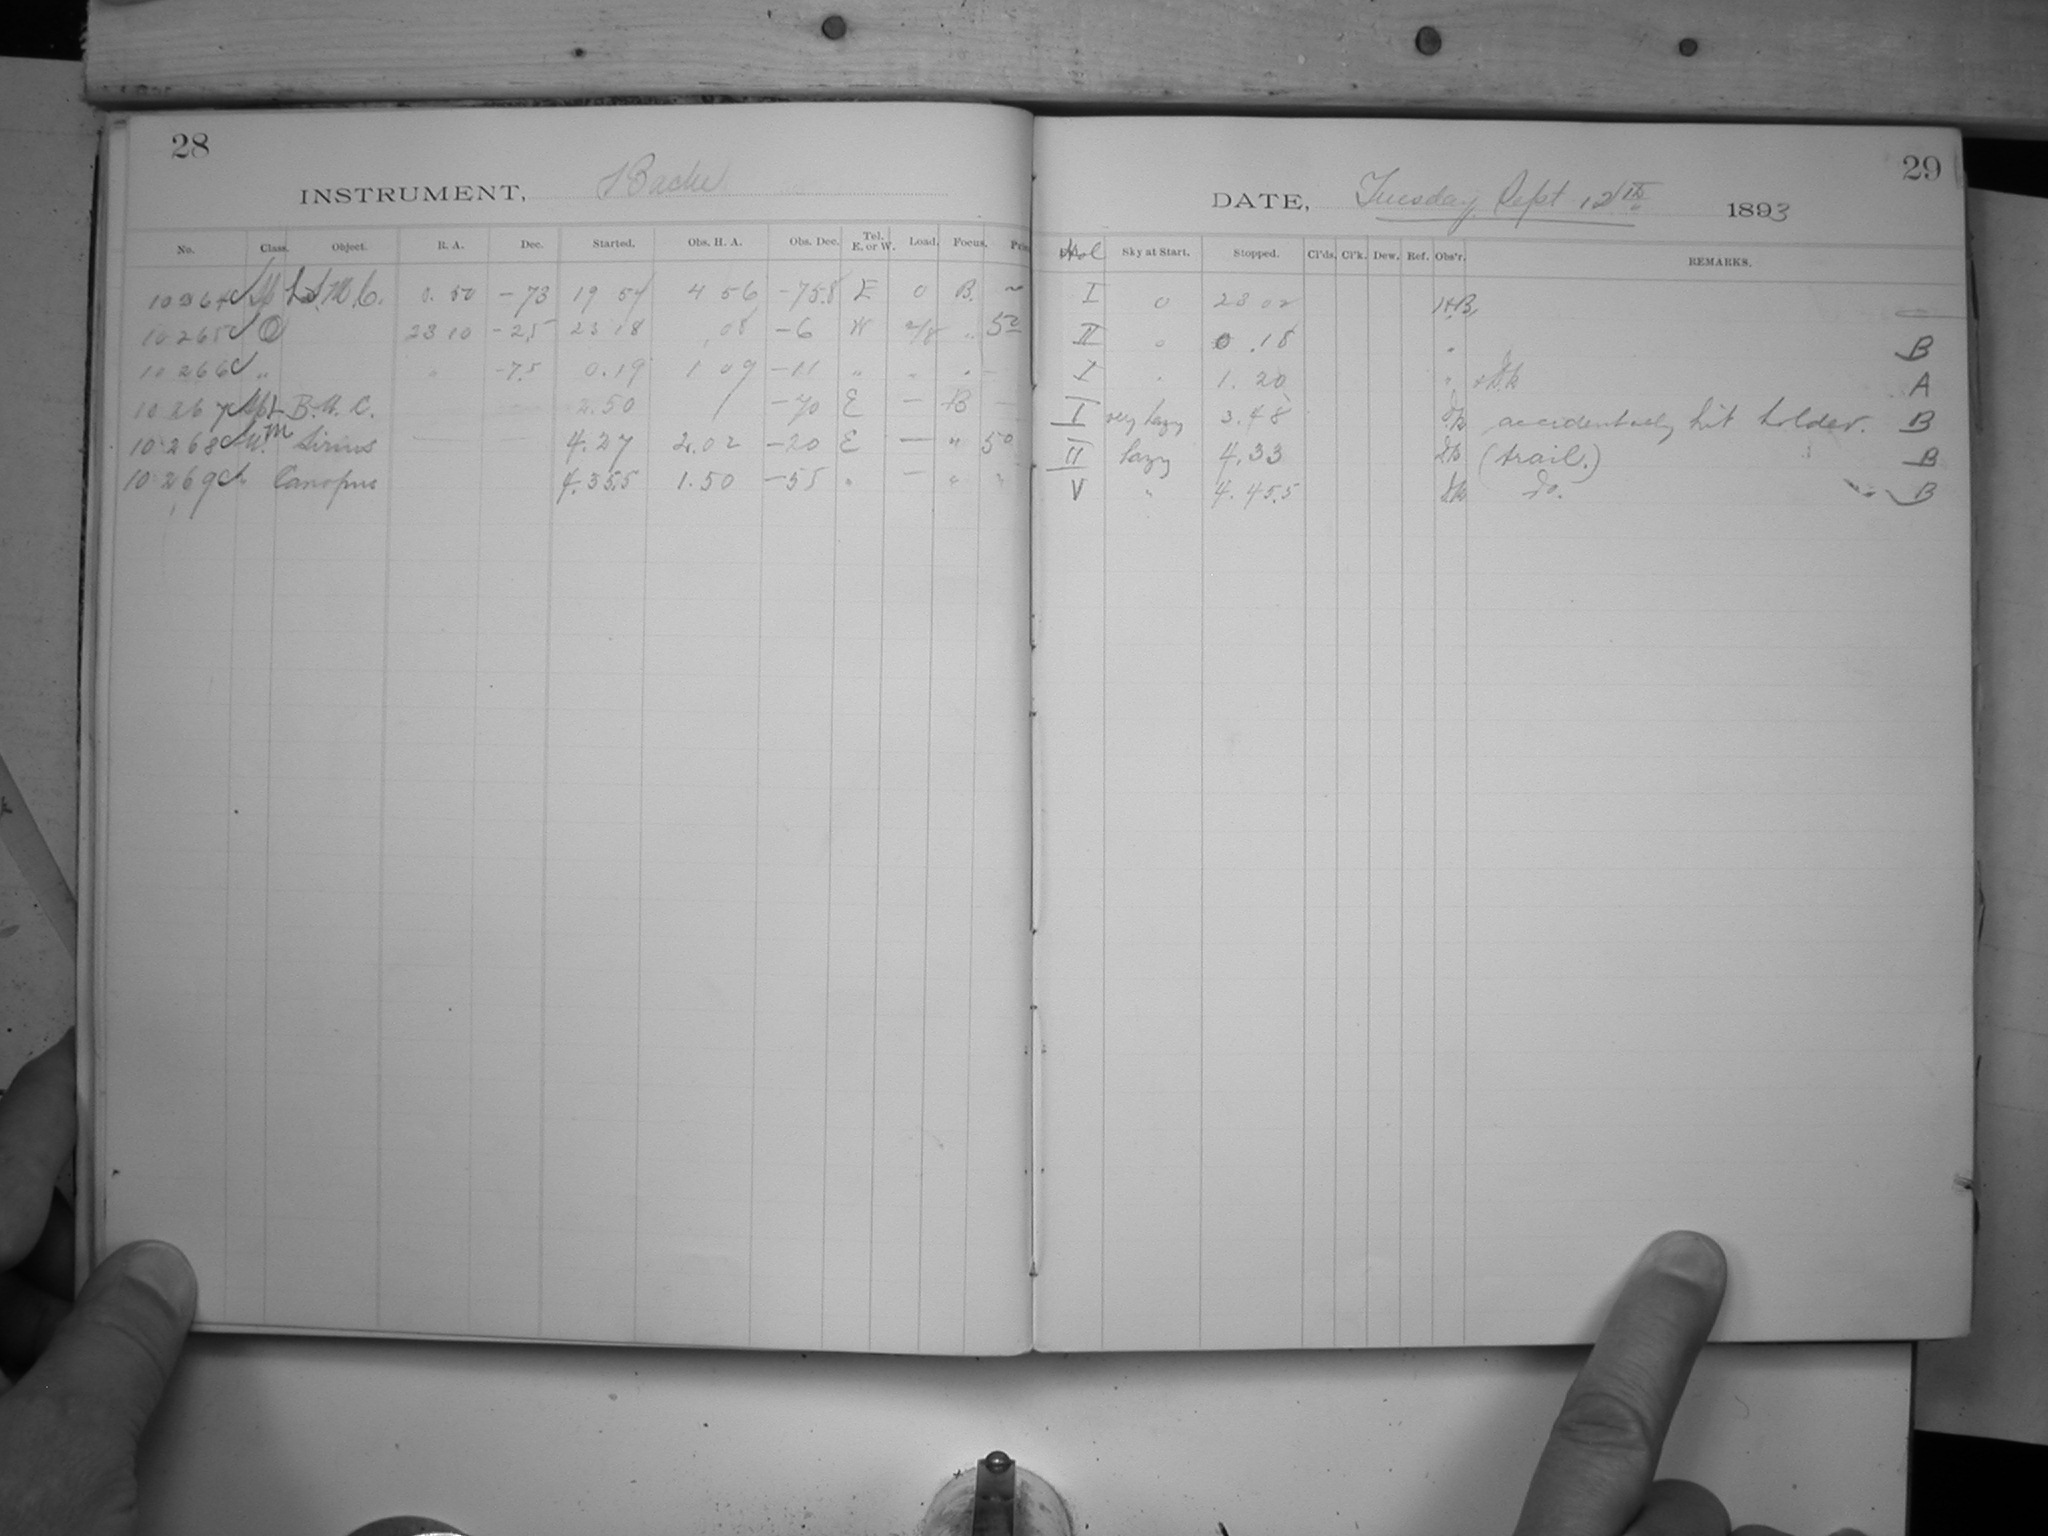 28
INSTRUMENT, Bache
No. Class. Object. R. A. Dec. Started. Obs. H. A. Obs. Dec. Tel. E. or W. Load. Focus.
10264 Sp L S.M.C. 0. 50 -73 19 54 4 56 -75.8 E 0 B. ~
10265 23 10 -2.5 23 18 08 -6 W " 50
10266 " " -7.5 0.19 1 09 -11 " " " -
10267 Sp L B.M.C. 2.50 -70 E — B —
10268 Sirius 4.27 2.02 -20 E — " 50
10269 Canopus 4.35.5 1.50 -55 " — " "
29
DATE, Tuesday, Sept 12th 1893
Sky at Start. Stopped. Cl'ds. Cl'k. Dew. Ref. Obs'r. REMARKS.
I 0 23 02 H.B.
II " 0.18 " B
I " 1.20 " A
I very hazy 3.48 accidentally hit holder. B
II hazy 4.33 (trail.) B
V " 4.45.5 do. B